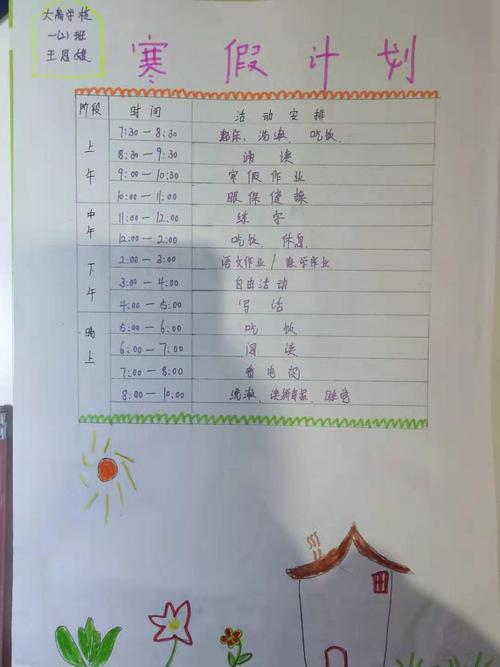 大禹学校
一(2)班
王恩媛
寒假计划
阶段 时间 活动安排
上午 7:30—8:30 起床、洗漱、吃饭
8:30—9:30 诵读
9:00—10:30 寒假作业
10:00—11:00 眼保健操
中午 11:00—12:00 练字
12:00—2:00 吃饭、休息
下午 2:00—3:00 语文作业/数学作业
3:00—4:00 自由活动
4:00—5:00 写话
晚上 5:00—6:00 吃饭
6:00—7:00 阅读
7:00—8:00 看电视
8:00—10:00 洗漱、读拼音报、睡觉